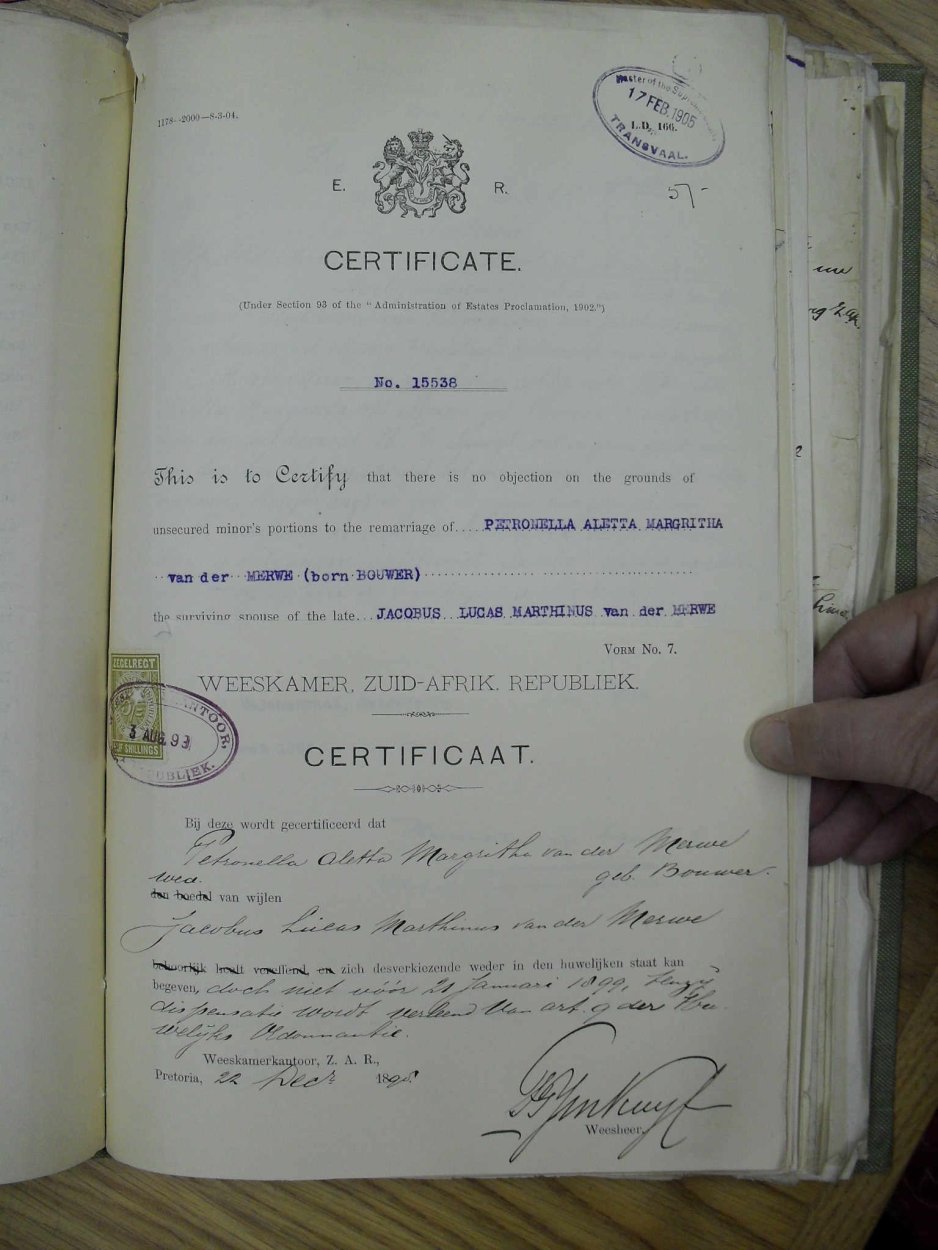 1178--2000--8-3-04.
Master of the Supreme
17 FEB. 1905
L.D. 166.
TRANSVAAL.
E. R.
5/-
CERTIFICATE.
(Under Section 93 of the "Administration of Estates Proclamation, 1902.")
No. 15538
This is to Certify that there is no objection on the grounds of
unsecured minor's portions to the remarriage of.... PETRONELLA ALETTA MARGRITHA
van der MERWE (born BOUWER)
the surviving spouse of the late... JACOBUS LUCAS MARTHINUS van der MERWE
VORM No. 7.
WEESKAMER, ZUID-AFRIK. REPUBLIEK.
ZEGELREGT
SHILLINGS
KANTOOR.
3 AUG. 93
REPUBLIEK.
CERTIFICAAT.
Bij deze wordt gecertificeerd dat
Petronella Aletta Margritha van der Merwe
geb. Bouwer.
wed.
den boedel van wijlen
Jacobus Lucas Marthinus van der Merwe
behoorlijk heeft vereffend, en zich desverkiezende weder in den huwelijken staat kan
begeven, doch niet vóór 21 Januari 1899, tenzij
dispensatie wordt verleend van art. 9 der Hu-
welijks Ordonnantie.
Weeskamerkantoor, Z. A. R.,
Pretoria, 22 Decr 1898.
Weesheer.